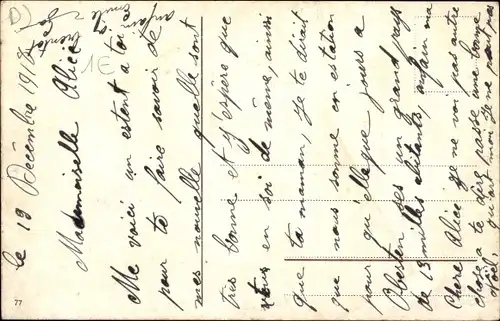 le 19 Décembre 1918
Mademoiselle Alice
Me voici un estent a toi
pour te faire savoir de
mes nouvelle quelle sont
tres bonne et j'espère que
en soi de même, ainsi
que ta maman, Je te dirait
que nous somme en station
pour quelleque jours a
un grand pays
de 13 milles abitants, enfain ma
Chere Alice je ne voi pas autre
chose a te dire passe une bonne
Noël,
enfain
bientot
1E
77